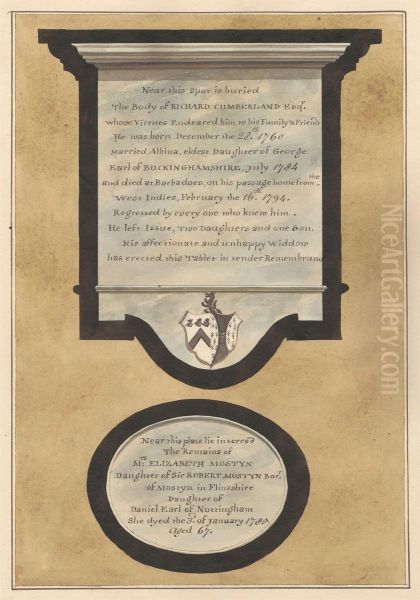 Near this Spot is buried
The Body of RICHARD CUMBERLAND Esqr.
whose Virtues Endeared him to his Family & Friends
He was born December the 28th. 1760
Married Albina, eldest Daughter of George
Earl of BUCKINGHAMSHIRE, July 1784
and died at Barbadoes, on his passage home from the
West Indies, February the 16th. 1794.
Regretted by every one who knew him.
He left Issue, Two Daughters and one Son.
His affectionate and unhappy Widdow
has erected this Tablet in tender Remembrance
Near this place lie interred
The Remains of
Mrs ELIZABETH MOSTYN
Daughter of Sir ROBERT MOSTYN Bart.
of Mostyn in Flintshire
Daughter of
Daniel Earl of Nottingham
She dyed the 3d. of January
Aged 67.
NiceArtGallery.com